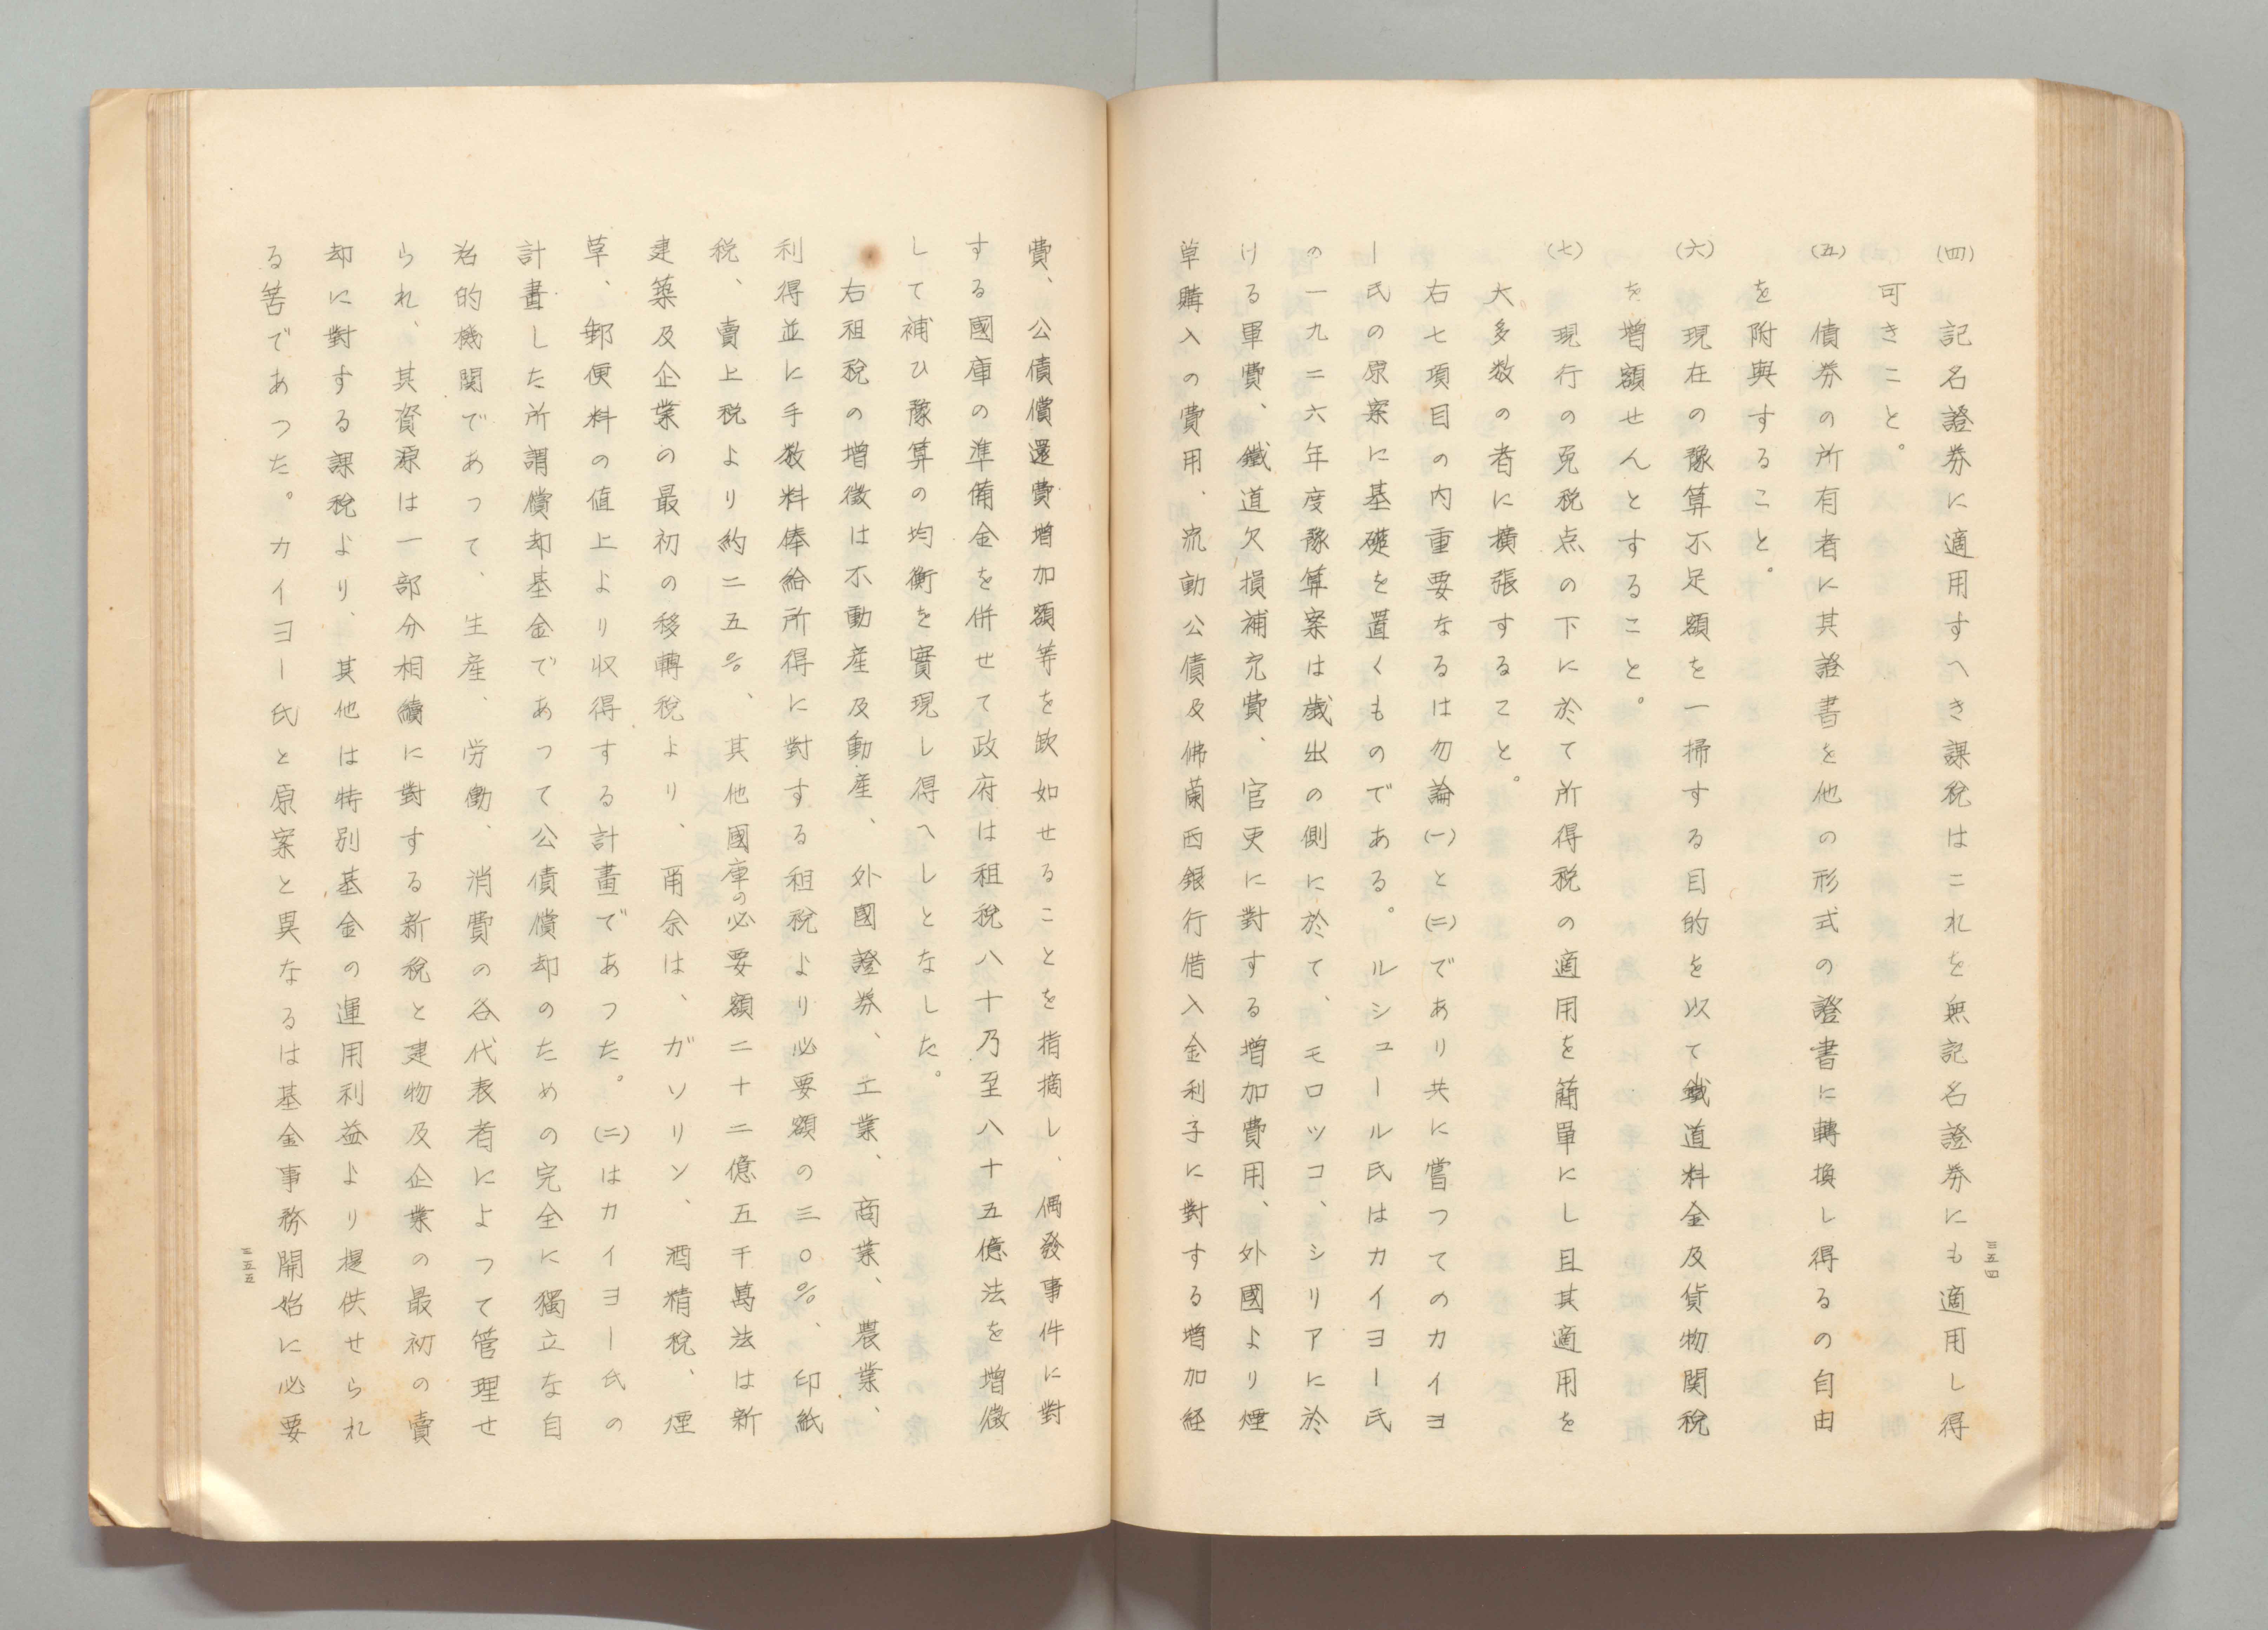 (四) 記名證券に適用すへき課税はこれを無記名證券にも適用し得
可きこと。
(五) 債券の所有者に其證書を他の形式の證書に轉換し得るの自由
を附與すること。
(六) 現在の豫算不足額を一掃する目的を以て鐵道料金及貨物関税
を増額せんとすること。
(七) 現行の免税点の下に於て所得税の適用を簡單にし且其適用を
大多数の者に擴張すること。
右七項目の内重要なるは勿論(一)と(二)であり共に嘗つてのカイヨ
ー氏の原案に基礎を置くものである。ルシュール氏はカイヨー氏
の一九二六年度豫算案は歳出の側に於て、モロツコ、シリアに於
ける軍費、鐵道欠損補充費、官吏に對する増加費用、外國より煙
草購入の費用、流動公債及佛蘭西銀行借入金利子に對する増加経
三五四
費、公債償還費増加額等を缺如せることを指摘し、偶發事件に對
する國庫の準備金を併せて政府は租税八十乃至八十五億法を増徴
して補ひ豫算の均衡を實現し得へしとなした。
右租税の増徴は不動産及動産、外國證券、工業、商業、農業、
利得並に手数料俸給所得に對する租税より必要額の三〇%、印紙
税、賣上税より約二五%、其他國庫の必要額二十二億五千萬法は新
建築及企業の最初の移轉税より、爾余は、ガソリン、酒精税、煙
草、郵便料の値上より収得する計畫であつた。(二)はカイヨー氏の
計畫した所謂償却基金であつて公債償却のための完全に獨立な自
治的機関であつて、生産、労働、消費の各代表者によつて管理せ
られ、其資源は一部分相續に對する新税と建物及企業の最初の賣
却に對する課税より、其他は特別基金の運用利益より提供せられ
る筈であつた。カイヨー氏と原案と異なるは基金事務開始に必要
三五五